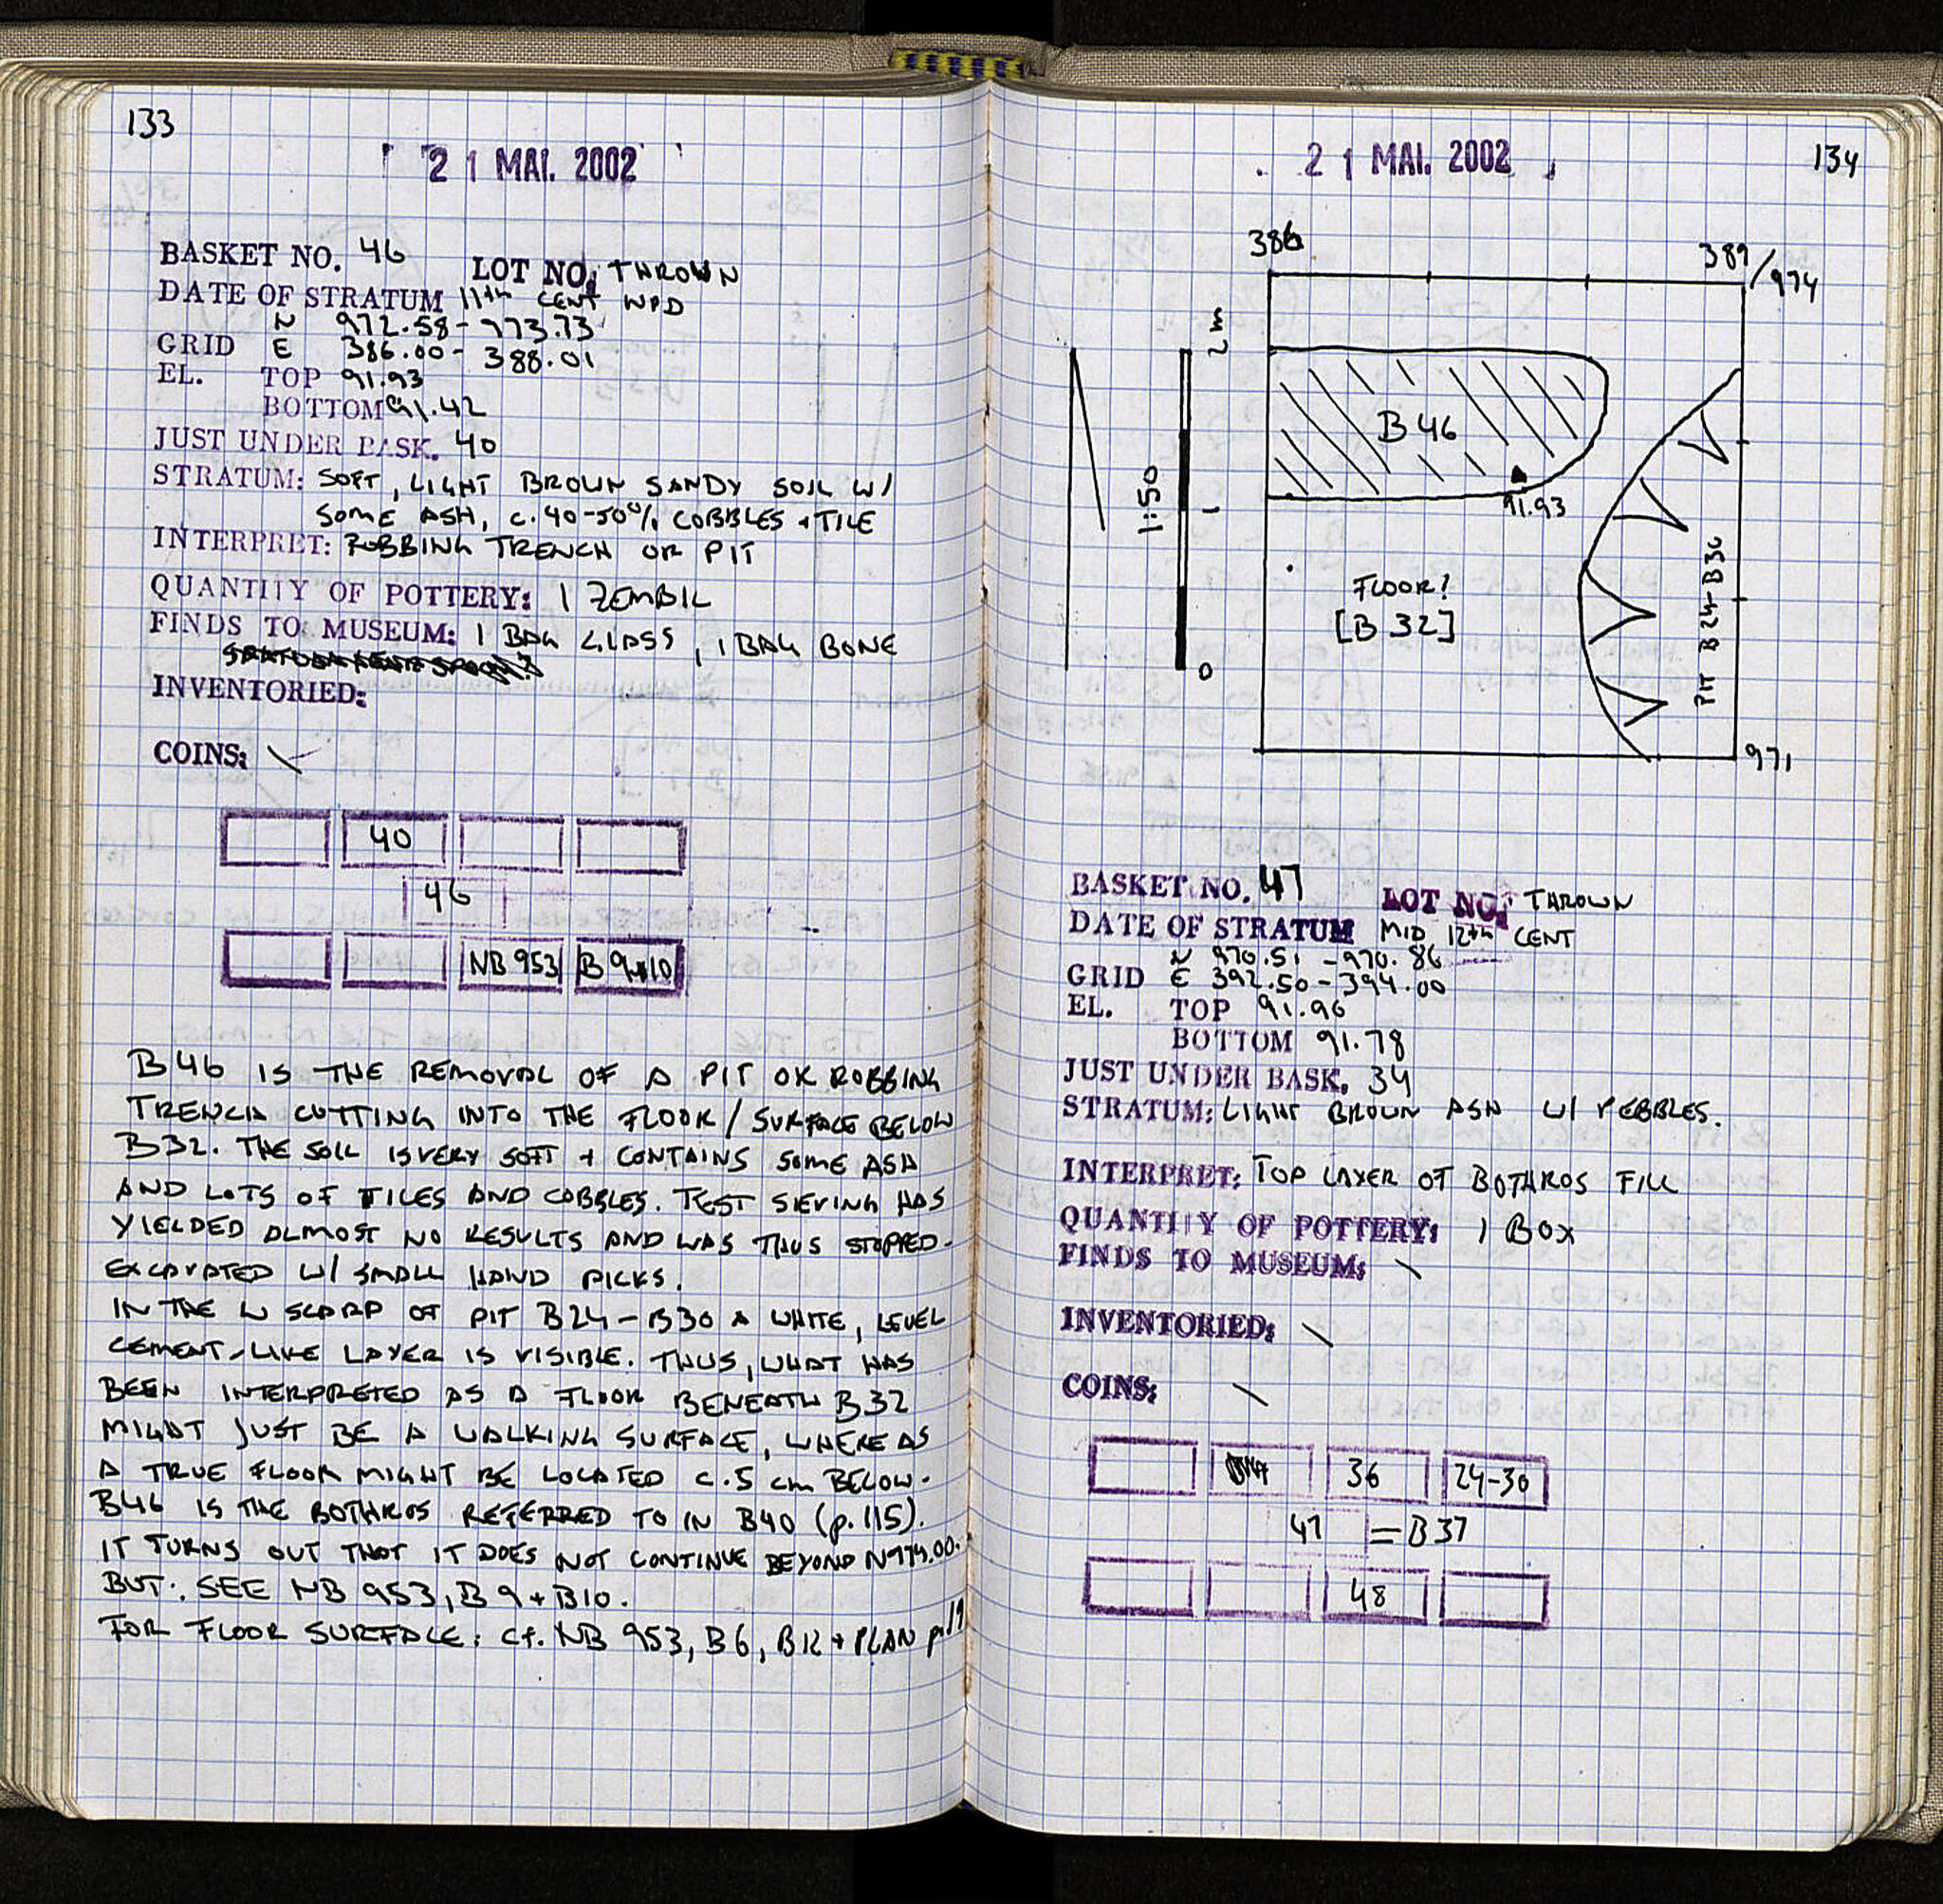 133
21 MAI. 2002
BASKET NO. 46 LOT NO. THROWN
DATE OF STRATUM 11th CENT WPD
N 972.58-973.73
GRID E 386.00-388.01
EL. TOP 91.93
BOTTOM 91.42
JUST UNDER BASK. 40
STRATUM: SOFT, LIGHT BROWN SANDY SOIL W/
SOME ASH, c. 40-50% COBBLES + TILE
INTERPRET: ROBBING TRENCH OR PIT
QUANTITY OF POTTERY: 1 ZEMBIL
FINDS TO MUSEUM: 1 BAG GLASS, 1 BAG BONE
INVENTORIED:
COINS: \
40
46
NB 953 B 9+10
B46 IS THE REMOVAL OF A PIT OR ROBBING
TRENCH CUTTING INTO THE FLOOR/SURFACE BELOW
B32. THE SOIL IS VERY SOFT + CONTAINS SOME ASH
AND LOTS OF TILES AND COBBLES. TEST SIEVING HAS
YIELDED ALMOST NO RESULTS AND WAS THUS STOPPED.
EXCAVATED W/ SMALL HAND PICKS.
IN THE W SCARP OF PIT B24-B30 A WHITE, LEVEL
CEMENT-LIKE LAYER IS VISIBLE. THUS, WHAT HAS
BEEN INTERPRETED AS A FLOOR BENEATH B32
MIGHT JUST BE A WALKING SURFACE, WHEREAS
A TRUE FLOOR MIGHT BE LOCATED c. 5 cm BELOW.
B46 IS THE BOTHROS REFERRED TO IN B40 (p. 115).
IT TURNS OUT THAT IT DOES NOT CONTINUE BEYOND N974.00.
BUT: SEE NB 953, B9 + B10.
FOR FLOOR SURFACE: cf. NB 953, B6, B12 + PLAN p. 19
21 MAI. 2002
134
386
389/974
2 m
1:50
1
0
B 46
91.93
FLOOR?
[B 32]
PIT B 24-B30
971
BASKET NO. 47 LOT NO. THROWN
DATE OF STRATUM MID 12th CENT
N 970.51-970.86
GRID E 392.50-394.00
EL. TOP 91.96
BOTTOM 91.78
JUST UNDER BASK. 34
STRATUM: LIGHT BROWN ASH W/ PEBBLES.
INTERPRET: TOP LAYER OF BOTHROS FILL
QUANTITY OF POTTERY: 1 BOX
FINDS TO MUSEUM: \
INVENTORIED: \
COINS: \
36 24-30
47 = B37
48